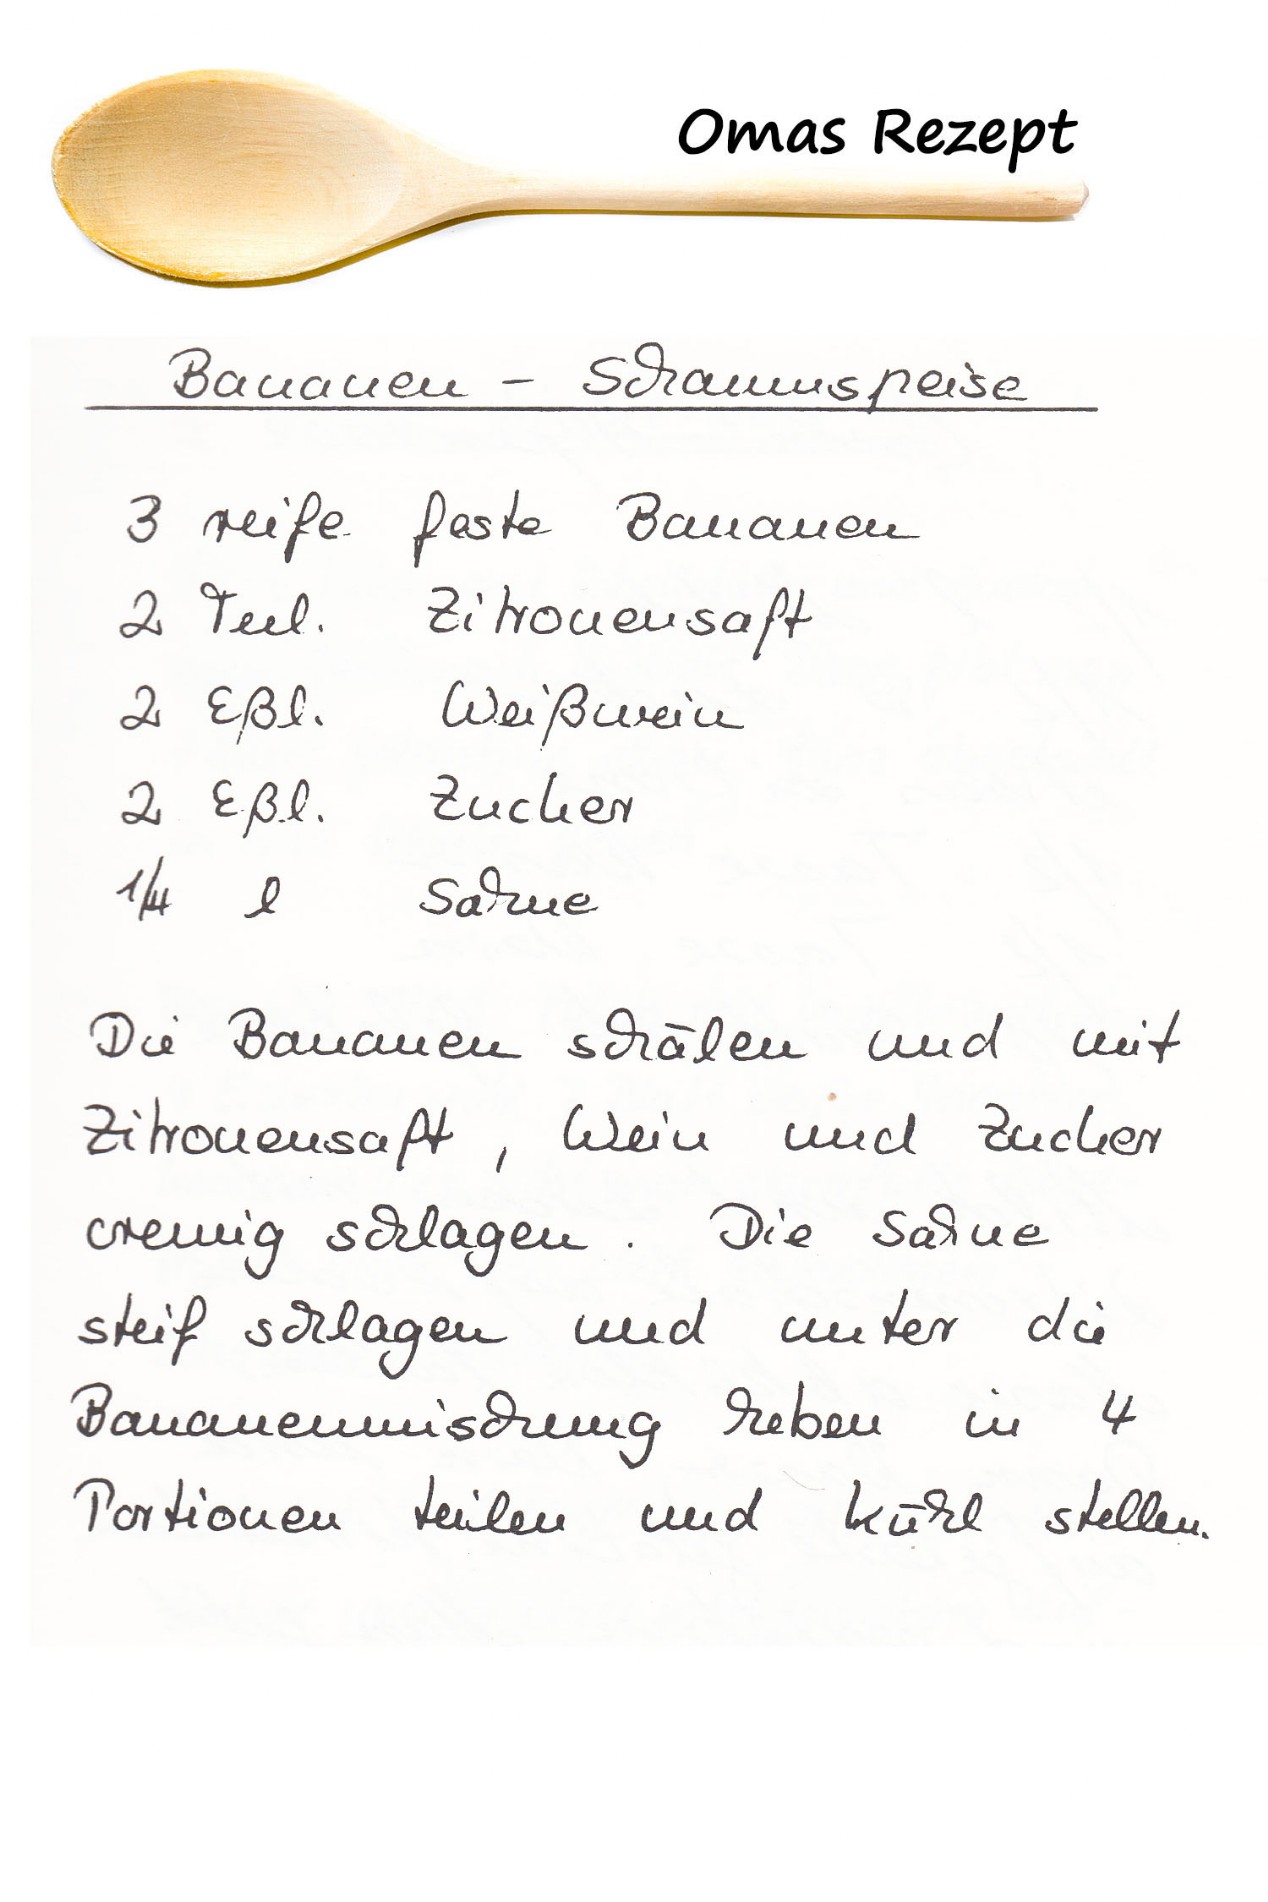 Omas Rezept
Bananen - Schaumspeise
3 reife feste Bananen
2 Teel. Zitronensaft
2 Eßl. Weißwein
2 Eßl. Zucker
1/4 l Sahne
Die Bananen schälen und mit
Zitronensaft, Wein und Zucker
cremig schlagen. Die Sahne
steif schlagen und unter die
Bananenmischung heben in 4
Portionen teilen und kühl stellen.